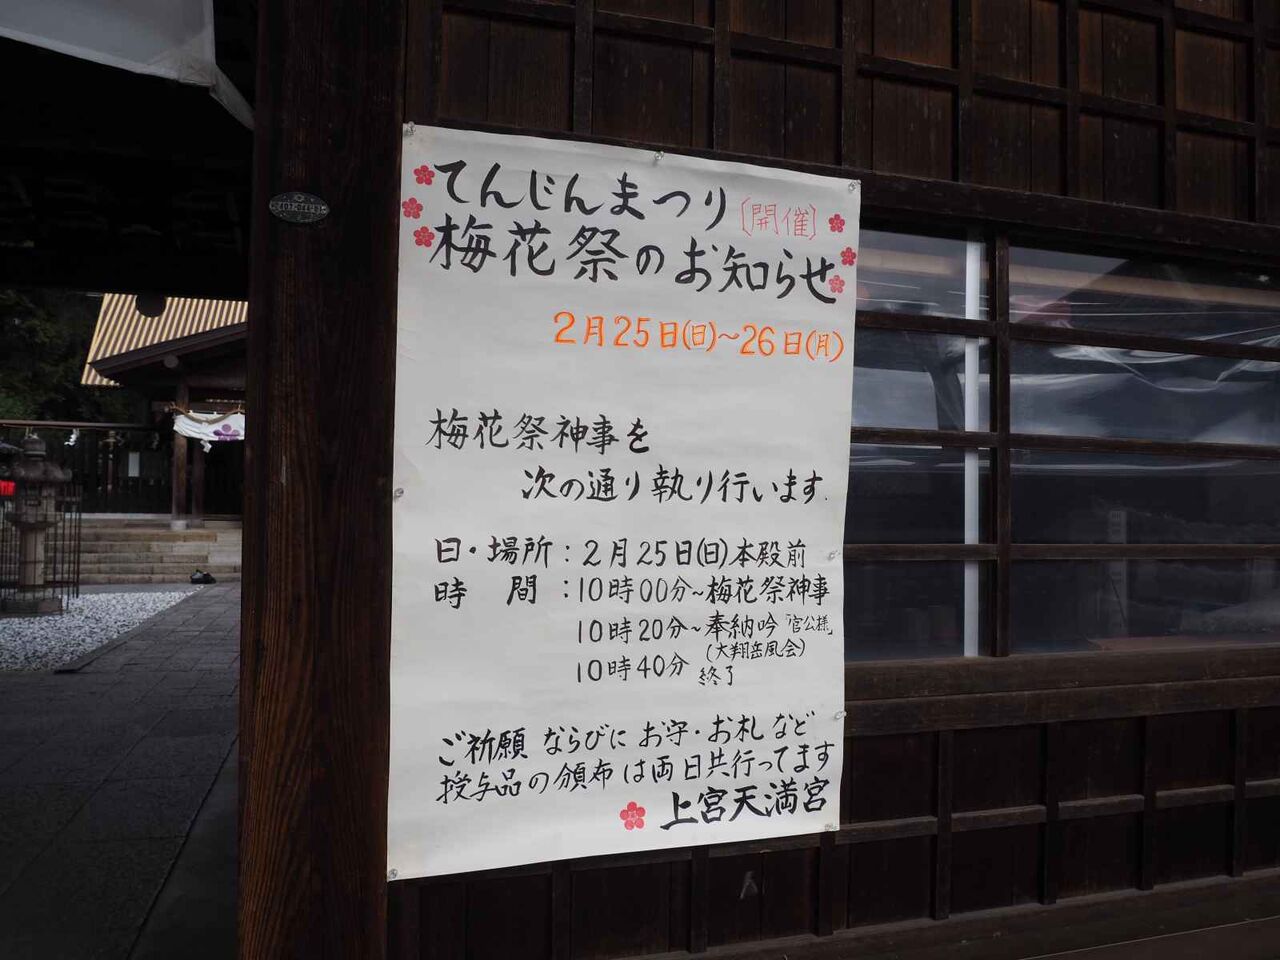 てんじんまつり〔開催〕
梅花祭のお知らせ
2月25日(日)～26日(月)
梅花祭神事を
次の通り執り行います.
日・場所：2月25日(日)本殿前
時　間：10時00分～梅花祭神事
10時20分～奉納吟「官公様」
(大翔岳風会)
10時40分 終了
ご祈願ならびにお守・お札など
授与品の頒布は両日共行ってます
上宮天満宮